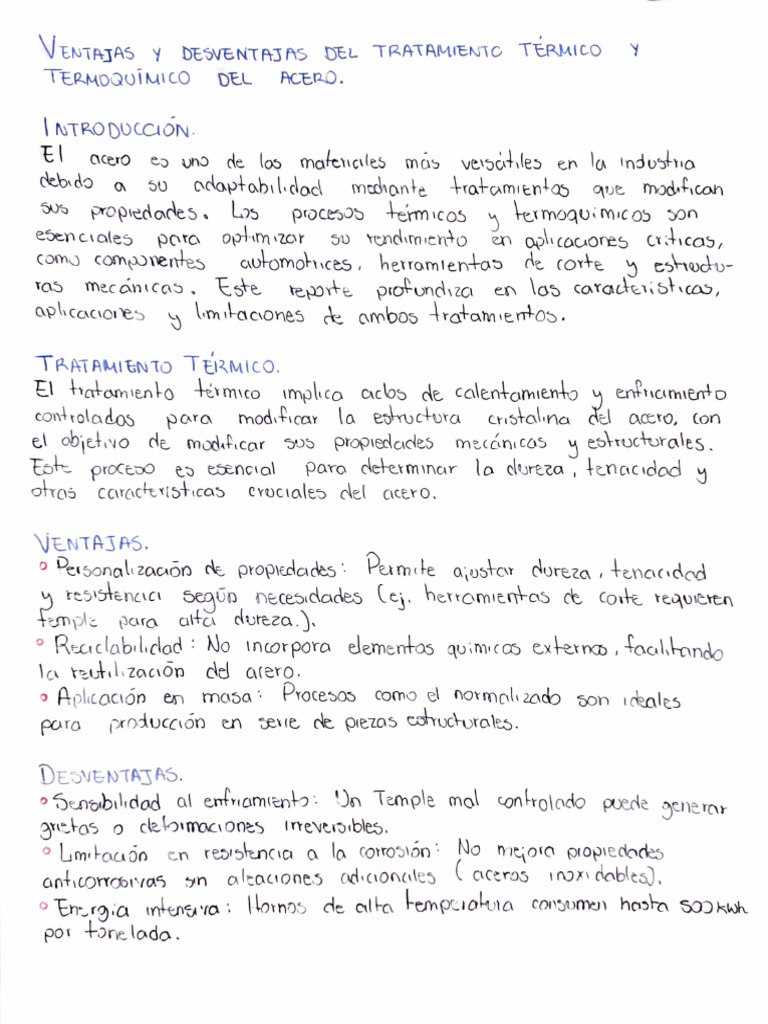 VENTAJAS Y DESVENTAJAS DEL TRATAMIENTO TÉRMICO Y
TERMOQUÍMICO DEL ACERO.
INTRODUCCIÓN.
El acero es uno de los materiales más versátiles en la industria
debido a su adaptabilidad mediante tratamientos que modifican
sus propiedades. Los procesos térmicos y termoquímicos son
esenciales para optimizar su rendimiento en aplicaciones críticas,
como componentes automotrices, herramientas de corte y estructu-
ras mecánicas. Este reporte profundiza en las características,
aplicaciones y limitaciones de ambos tratamientos.
TRATAMIENTO TÉRMICO.
El tratamiento térmico implica ciclos de calentamiento y enfriamiento
controlados para modificar la estructura cristalina del acero, con
el objetivo de modificar sus propiedades mecánicas y estructurales.
Este proceso es esencial para determinar la dureza, tenacidad y
otras características cruciales del acero.
VENTAJAS.
• Personalización de propiedades: Permite ajustar dureza, tenacidad
y resistencia según necesidades (ej. herramientas de corte requieren
temple para alta dureza.).
• Reciclabilidad: No incorpora elementos químicos externos, facilitando
la reutilización del acero.
• Aplicación en masa: Procesos como el normalizado son ideales
para producción en serie de piezas estructurales.
DESVENTAJAS.
• Sensibilidad al enfriamiento: Un Temple mal controlado puede generar
grietas o deformaciones irreversibles.
• Limitación en resistencia a la corrosión: No mejora propiedades
anticorrosivas sin aleaciones adicionales (aceros inoxidables).
• Energía intensiva: Hornos de alta temperatura consumen hasta 500 kwh
por tonelada.